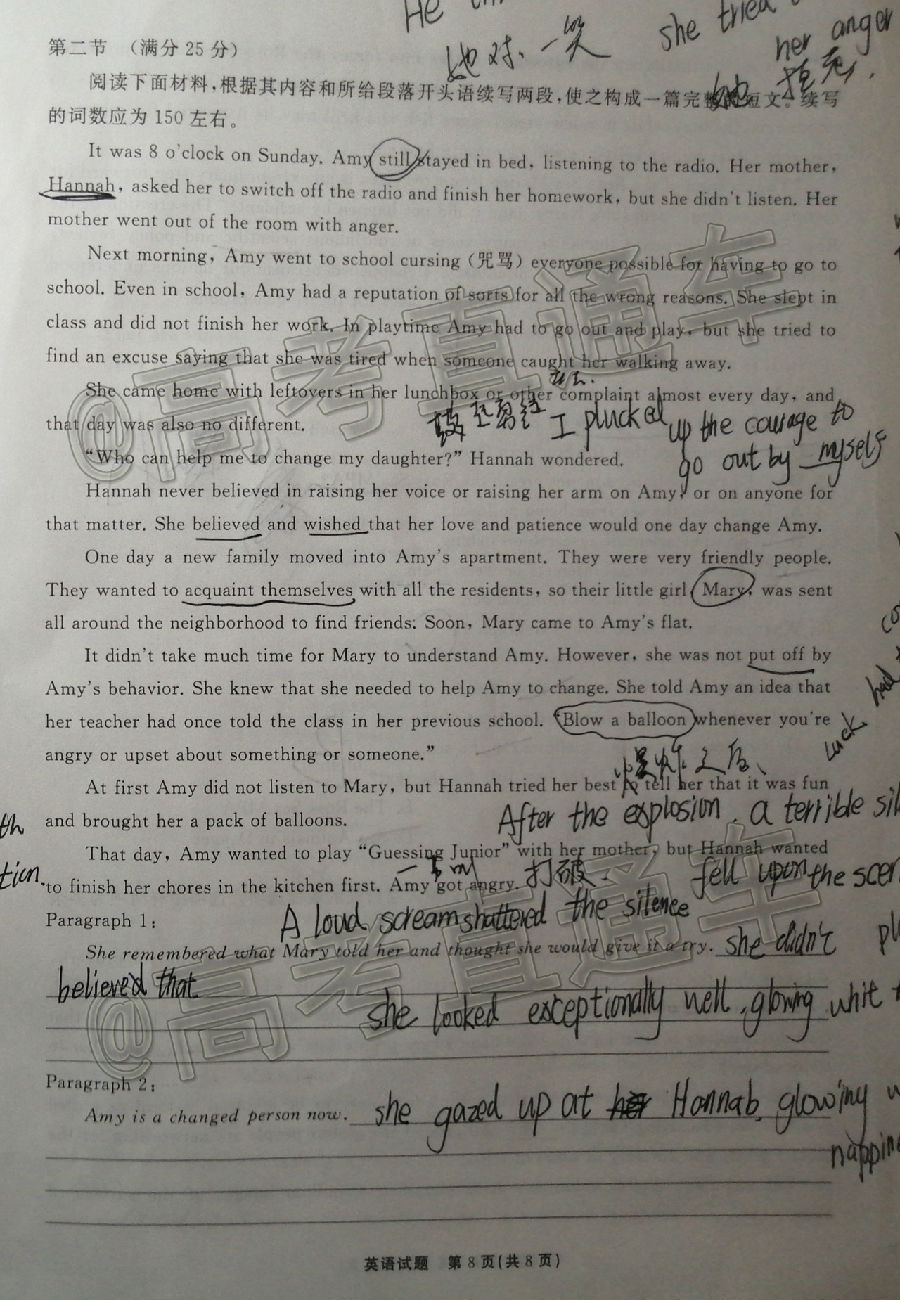 He
she tried
她对、一笑
her anger
第二节 (满分25分)
阅读下面材料,根据其内容和所给段落开头语续写两段,使之构成一篇完整的短文。续写
的词数应为150左右。
It was 8 o'clock on Sunday. Amy still stayed in bed, listening to the radio. Her mother,
Hannah, asked her to switch off the radio and finish her homework, but she didn't listen. Her
mother went out of the room with anger.
Next morning, Amy went to school cursing (咒骂) everyone possible for having to go to
school. Even in school, Amy had a reputation of sorts for all the wrong reasons. She slept in
class and did not finish her work. In playtime Amy had to go out and play, but she tried to
find an excuse saying that she was tired when someone caught her walking away.
She came home with leftovers in her lunchbox or other complaint almost every day, and
that day was also no different.
鼓起勇气
I plucked up the courage to
go out by myself
"Who can help me to change my daughter?" Hannah wondered.
Hannah never believed in raising her voice or raising her arm on Amy, or on anyone for
that matter. She believed and wished that her love and patience would one day change Amy.
One day a new family moved into Amy's apartment. They were very friendly people.
They wanted to acquaint themselves with all the residents, so their little girl, Mary, was sent
all around the neighborhood to find friends. Soon, Mary came to Amy's flat.
It didn't take much time for Mary to understand Amy. However, she was not put off by
Amy's behavior. She knew that she needed to help Amy to change. She told Amy an idea that
her teacher had once told the class in her previous school. "Blow a balloon whenever you're
angry or upset about something or someone."
luck had
爆炸之后、
At first Amy did not listen to Mary, but Hannah tried her best to tell her that it was fun
and brought her a pack of balloons.
After the explosion, a terrible
fell upon the
That day, Amy wanted to play "Guessing Junior" with her mother, but Hannah wanted
to finish her chores in the kitchen first. Amy got angry.
tion.
打破.
A loud scream shattered the silence
Paragraph 1:
She remembered what Mary told her and thought she would give it a try. she didn't
believed that
she looked exceptionally well, glowing whit
Paragraph 2:
Amy is a changed person now. she gazed up at Hannah, glowing
英语试题 第8页(共8页)
@高考直通车
@高考直通车